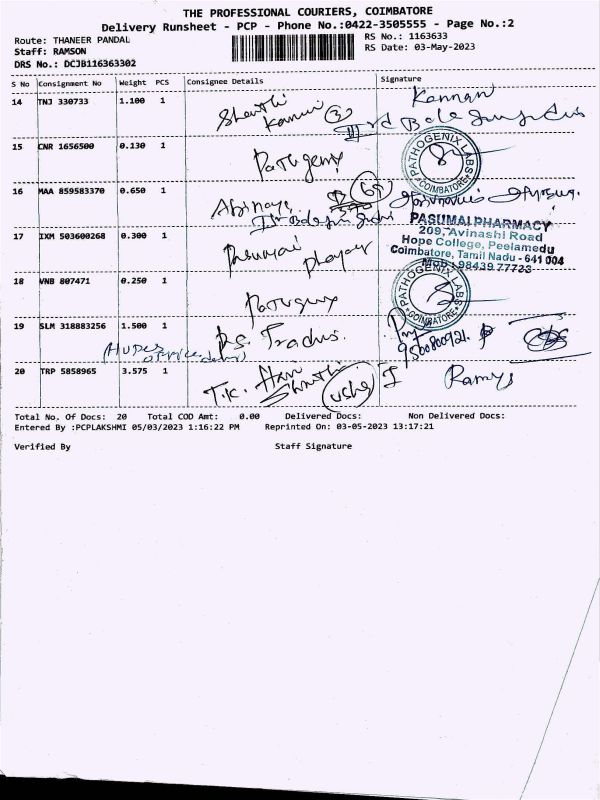 THE PROFESSIONAL COURIERS, COIMBATORE
Delivery Runsheet - PCP - Phone No.:0422-3505555 - Page No.:2
Route: THANEER PANDAL
RS No.: 1163633
Staff: RAMSON
RS Date: 03-May-2023
DRS No.: DCJB116363302
S No Consignment No Weight PCS Consignee Details Signature
14 TNJ 330733 1.100 1 Kannan
15 CNR 1656500 0.130 1
PATHOGENIX LABS
COIMBATORE
16 MAA 859583370 0.650 1 Abinaya
PASUMAI PHARMACY
209, Avinashi Road
Hope College, Peelamedu
Coimbatore, Tamil Nadu - 641 004
Mob : 98439 77733
17 IXM 503600268 0.300 1 Pasumai
18 VNB 807471 0.250 1
PATHOGENIX LABS
COIMBATORE
19 SLM 318883256 1.500 1 P.S. Tradus.
9500800921.
20 TRP 5858965 3.575 1 T.K. usha Ramys
Total No. Of Docs: 20 Total COD Amt: 0.00 Delivered Docs: Non Delivered Docs:
Entered By :PCPLAKSHMI 05/03/2023 1:16:22 PM Reprinted On: 03-05-2023 13:17:21
Verified By Staff Signature